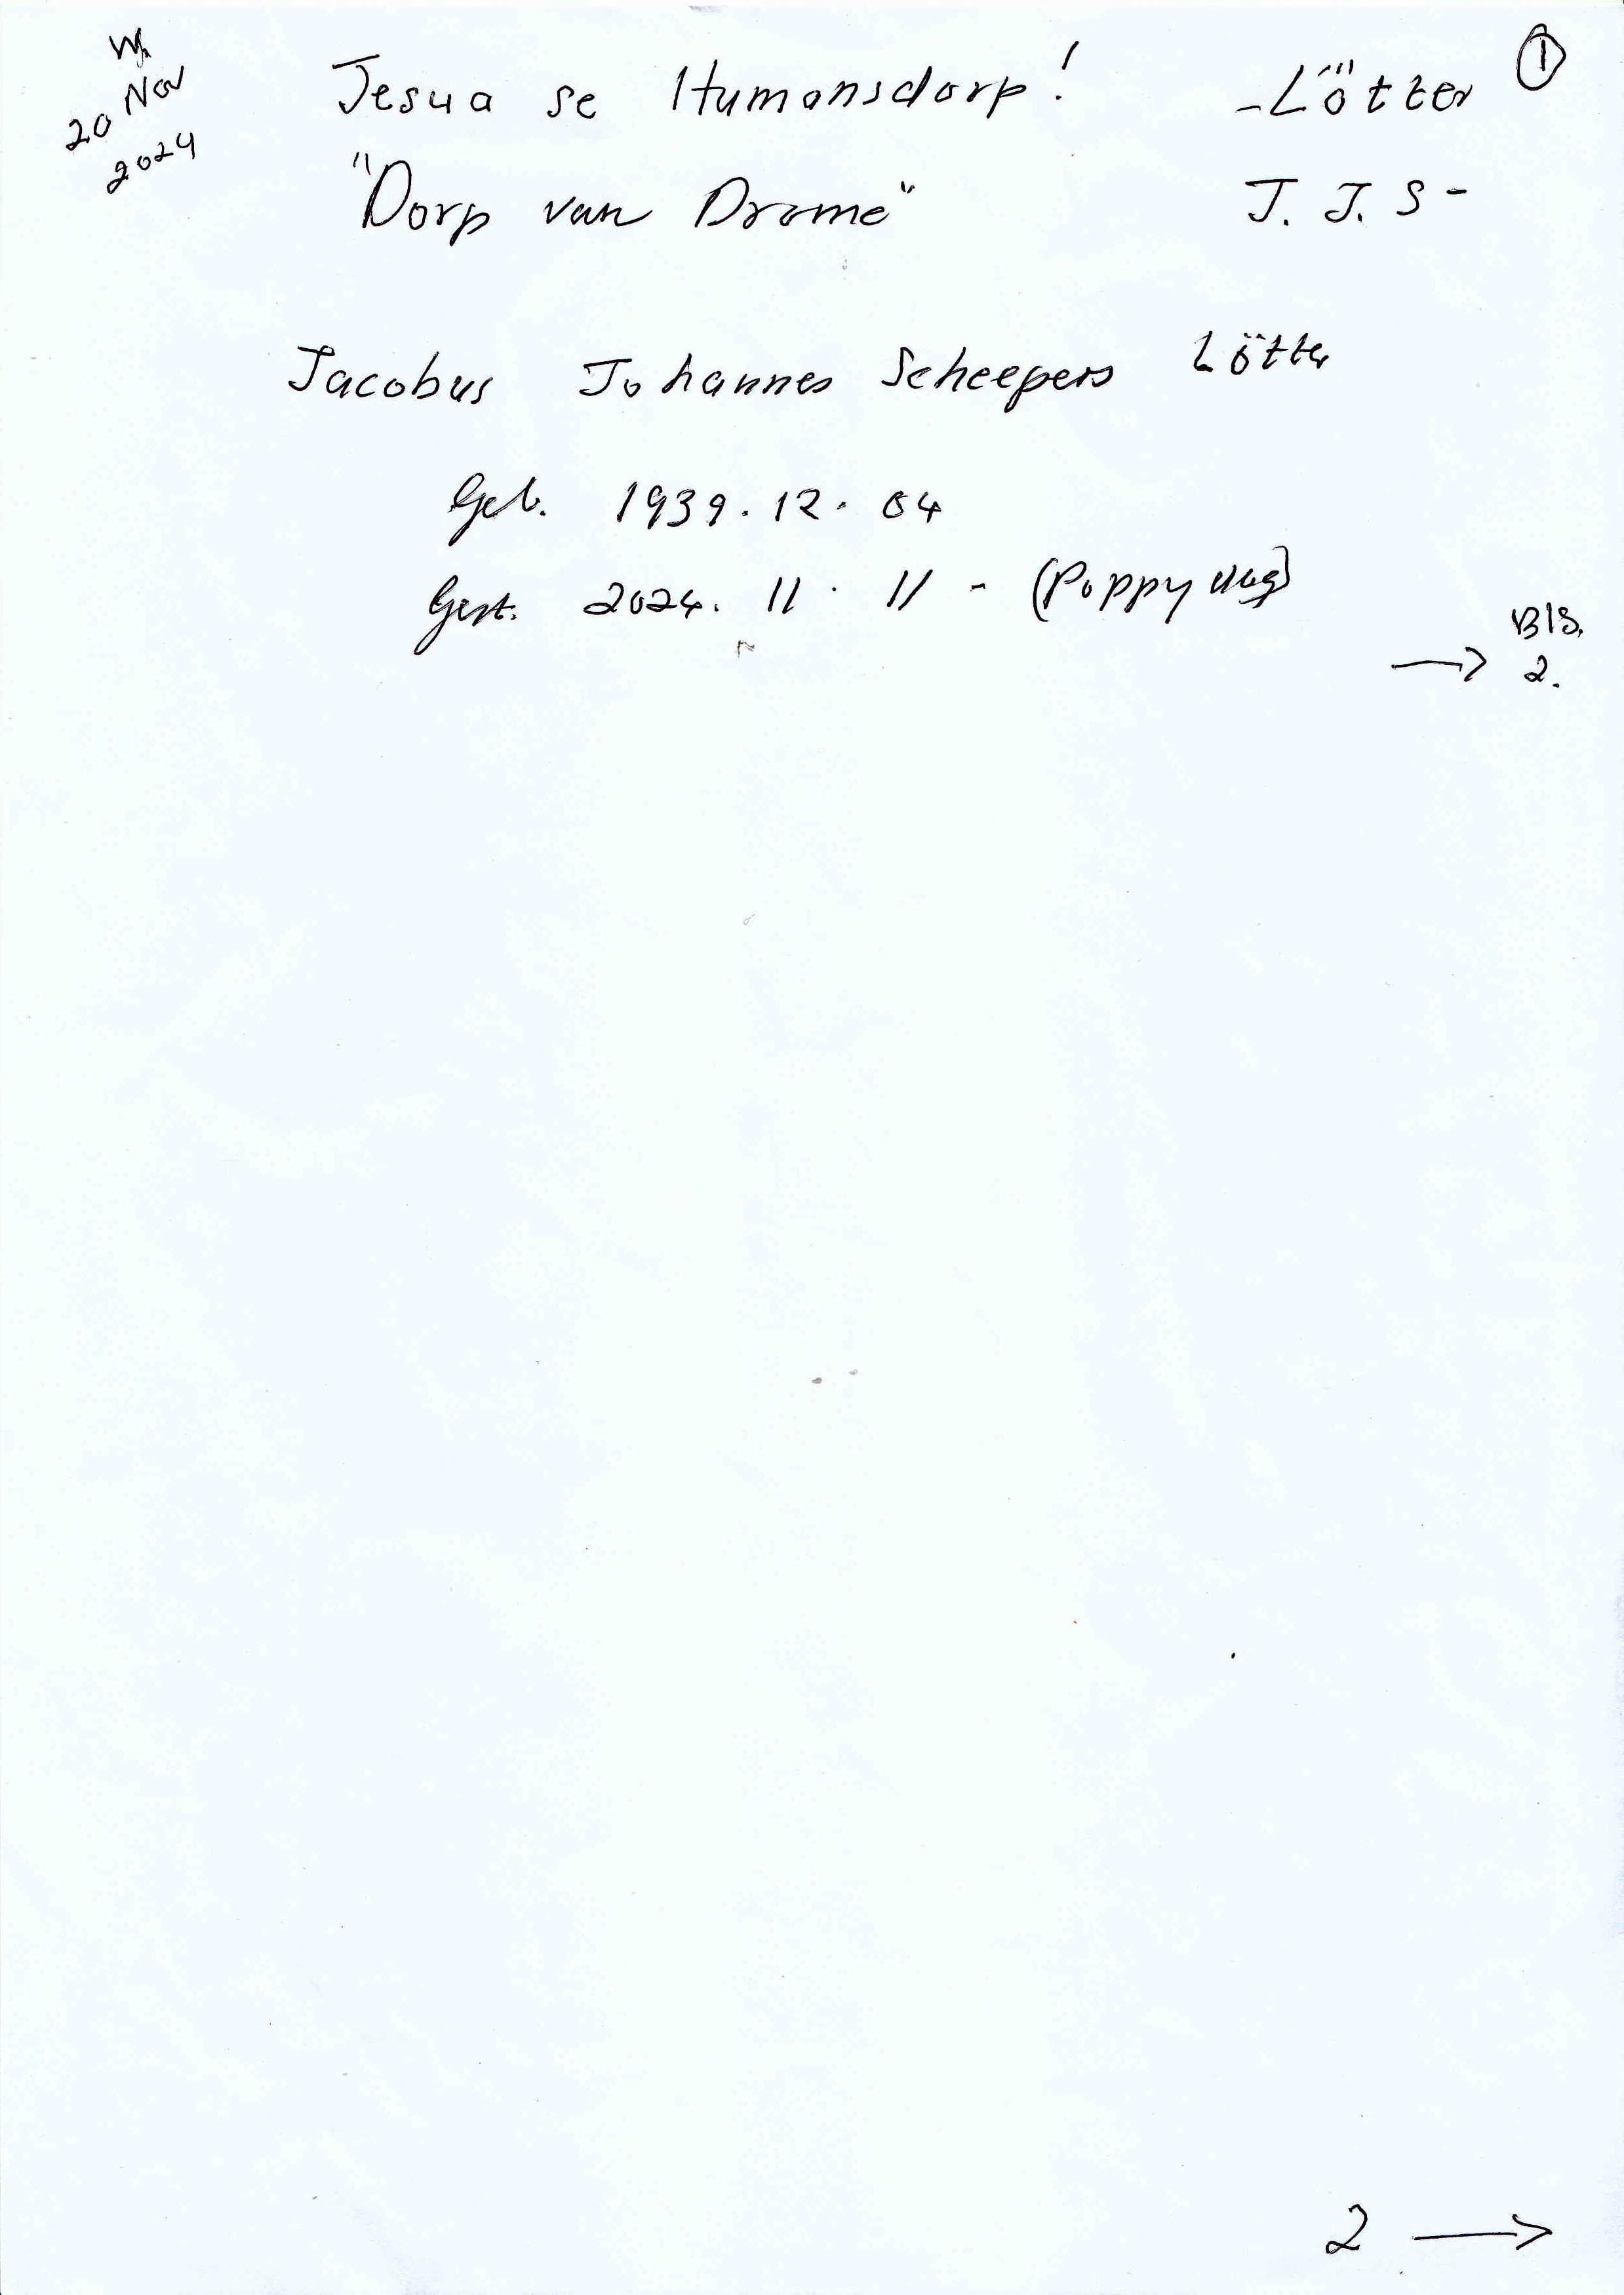 W.
20 Nov
2024
Jesua se Humansdorp! - Lötter ①
"Dorp van Drome" J. J. S -
Jacobus Johannes Scheepers Lötter
Geb. 1939.12.04
Gest. 2024.11.11 - (Poppy dag)
Bls.
→ 2.
2 →